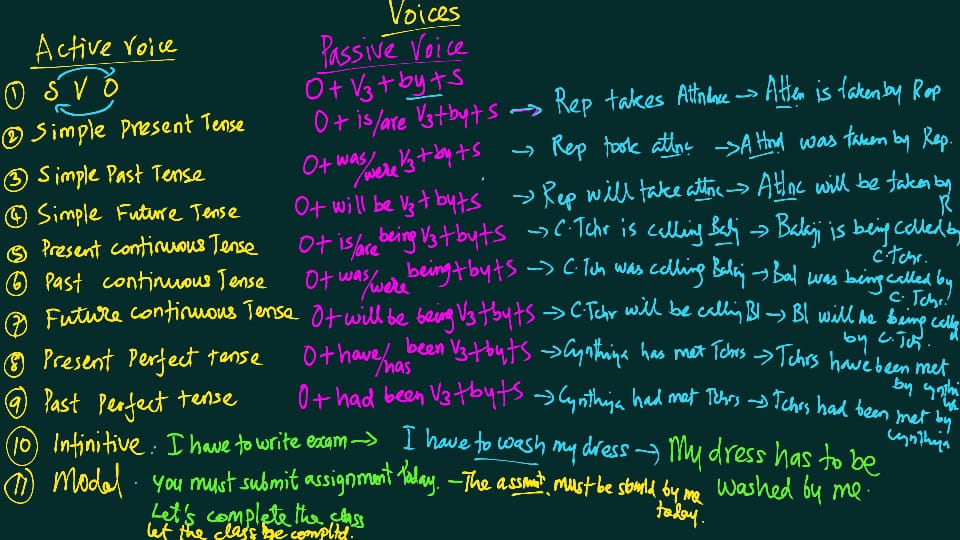 Voices
Active voice
Passive Voice
① S V O
O + V3 + by + S
② Simple Present Tense
O + is/are V3 + by + S → Rep takes Attndnce → Atten is taken by Rep
③ Simple Past Tense
O + was/were V3 + by + S → Rep took attnc → Attnd was taken by Rep.
④ Simple Future Tense
O + will be V3 + by + S → Rep will take attnc → Attnc will be taken by R
⑤ Present continuous Tense
O + is/are being V3 + by + S → C.Tchr is calling Balij → Balaji is being called by C.Tchr.
⑥ Past continuous Tense
O + was/were being + by + S → C.Tchr was calling Balaj → Bal was being called by C.Tchr.
⑦ Future continuous Tense
O + will be being V3 + by + S → C.Tchr will be calling Bl → Bl will be being called by C.Tch.
⑧ Present Perfect tense
O + have/has been V3 + by + S → Cynthiya has met Tchrs → Tchrs have been met by Cynthiya
⑨ Past Perfect tense
O + had been V3 + by + S → Cynthiya had met Tchrs → Tchrs had been met by Cynthiya
⑩ Infinitive. I have to write exam → I have to wash my dress → My dress has to be washed by me.
⑪ Model. You must submit assignment today. – The assmnt. must be by me today.
Let's complete the class
let the class be compltd.